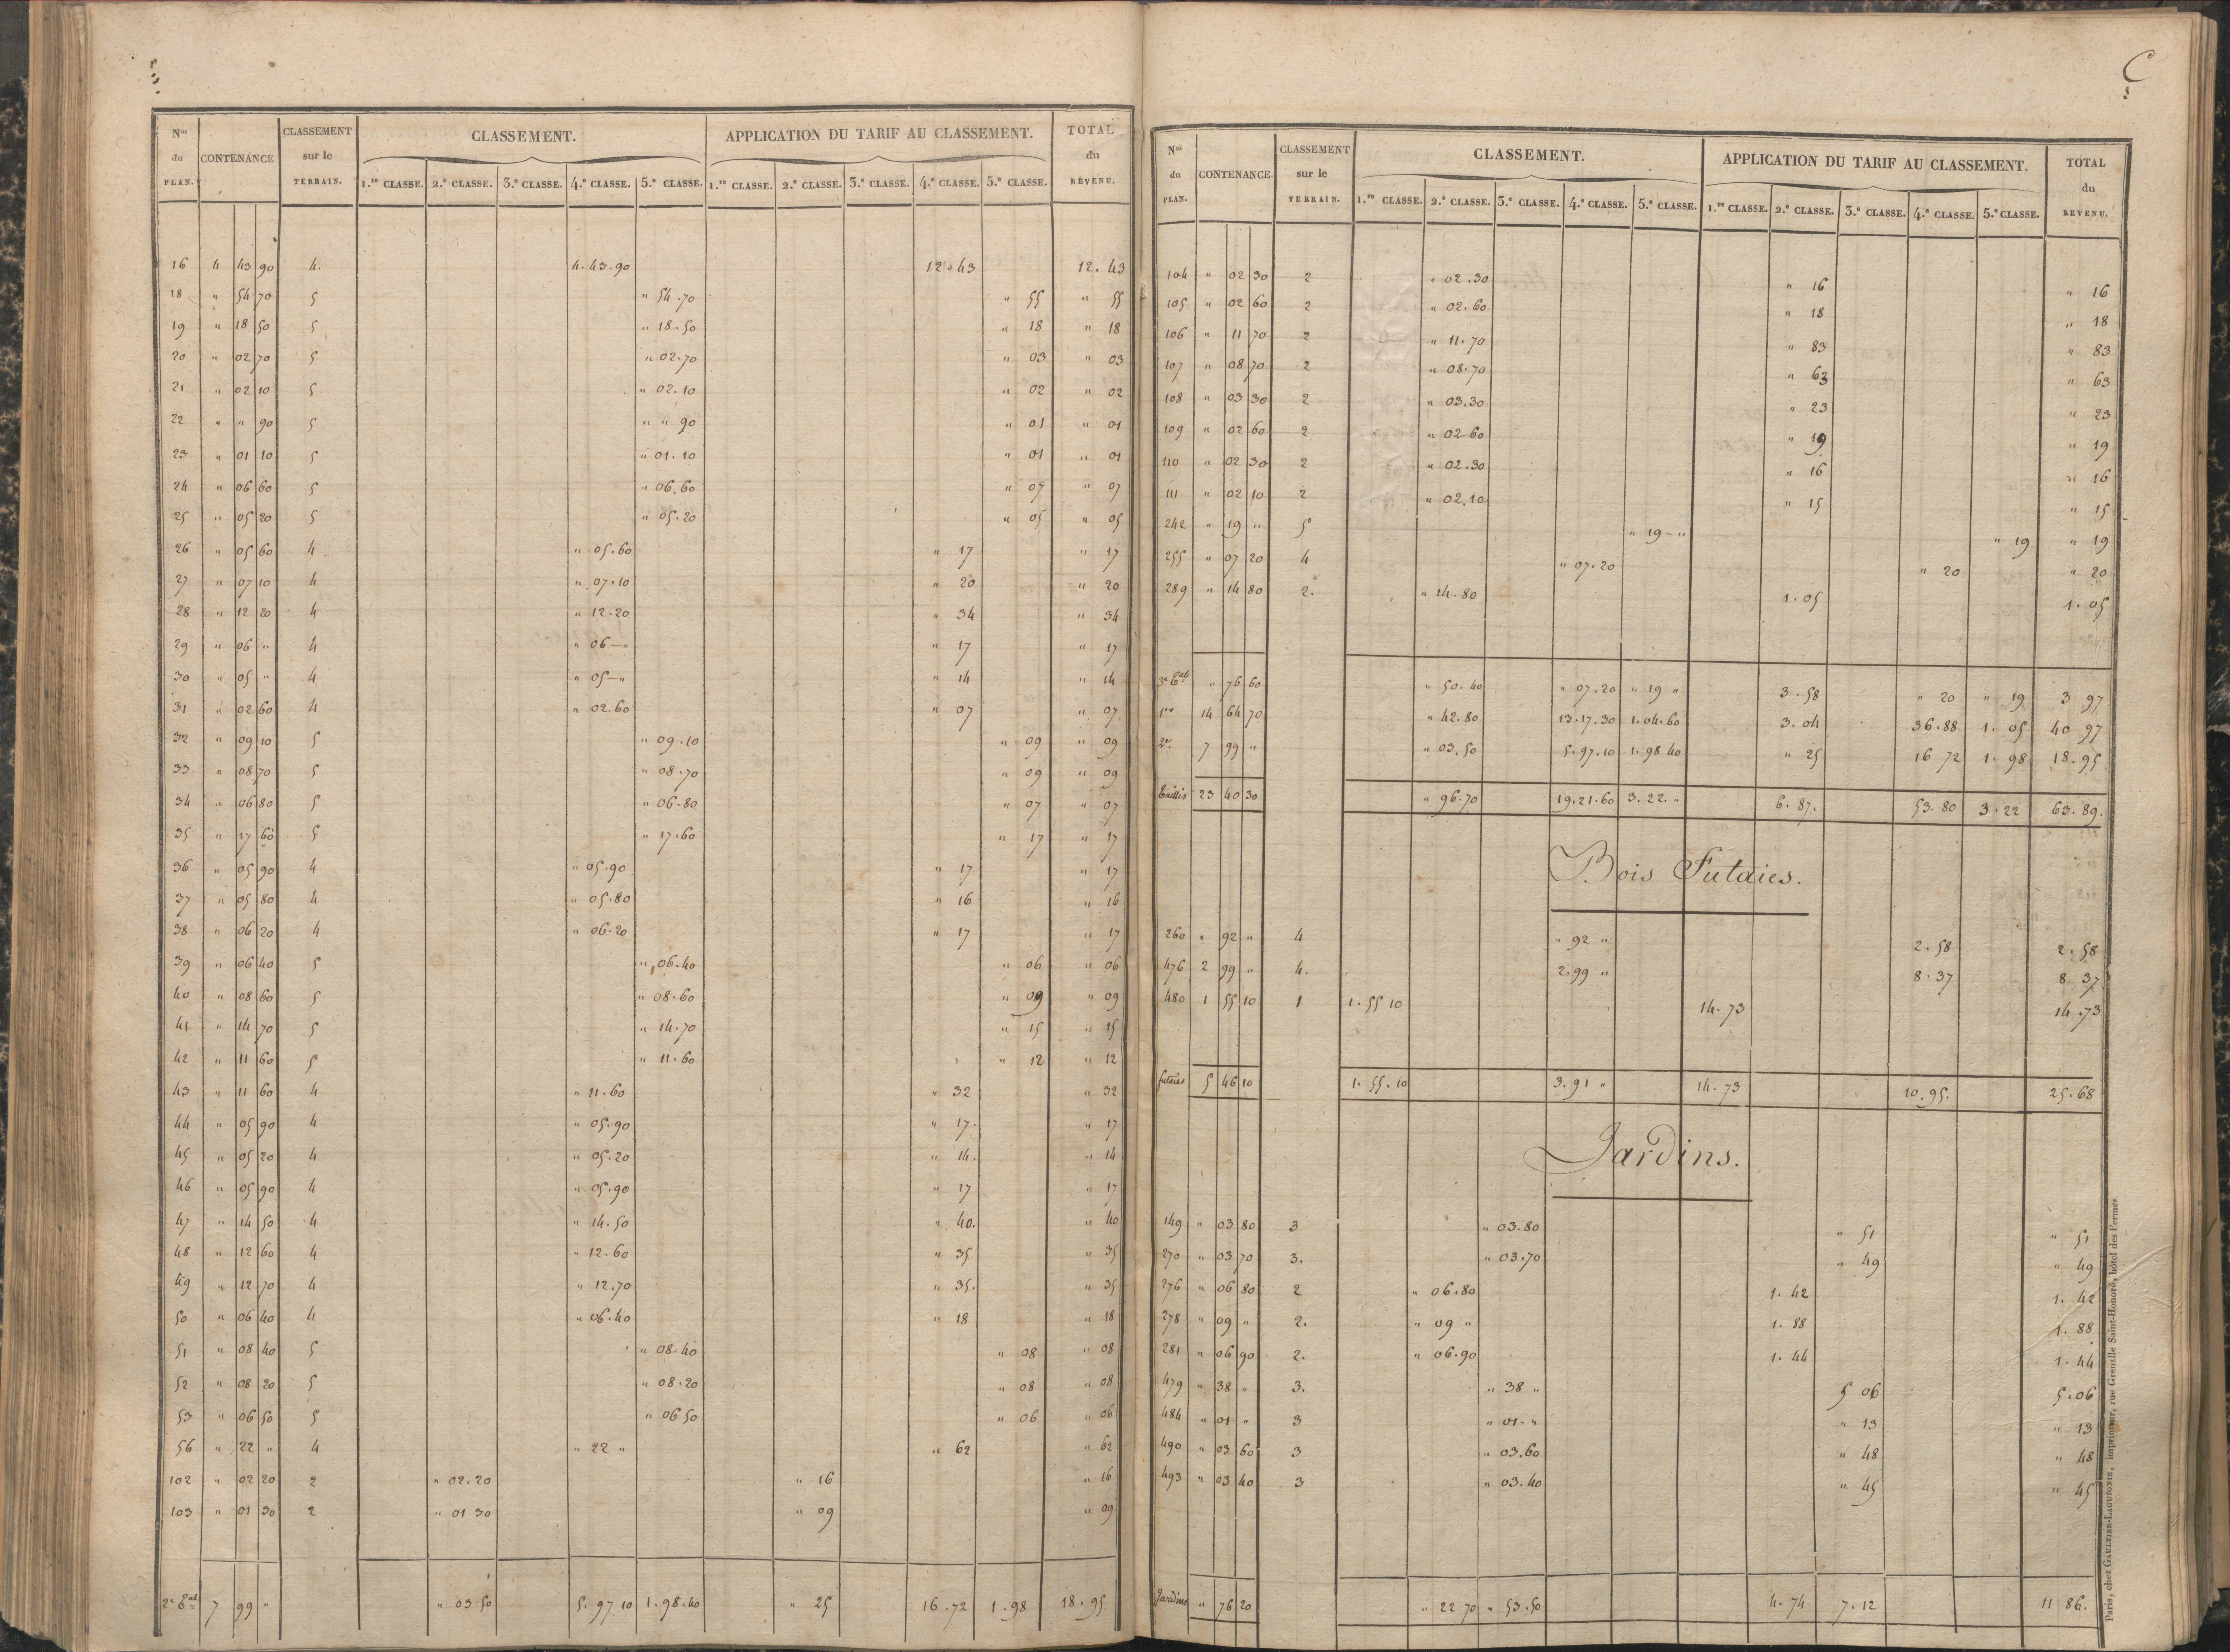 Nos du PLAN. CONTENANCE CLASSEMENT sur le TERRAIN. CLASSEMENT. APPLICATION DU TARIF AU CLASSEMENT. TOTAL du REVENU.
1.re CLASSE. 2.e CLASSE. 3.e CLASSE. 4.e CLASSE. 5.e CLASSE. 1.re CLASSE. 2.e CLASSE. 3.e CLASSE. 4.e CLASSE. 5.e CLASSE.
16 4 43 90 4. 4.43.90 12.43 12.43
18 " 54 70 5 " 54.70 " 55 " 55
19 " 18 50 5 " 18.50 " 18 " 18
20 " 02 70 5 " 02.70 " 03 " 03
21 " 02 10 5 " 02.10 " 02 " 02
22 " " 90 5 " " 90 " 01 " 01
23 " 01 10 5 " 01.10 " 01 " 01
24 " 06 60 5 " 06.60 " 07 " 07
25 " 05 20 5 " 05.20 " 05 " 05
26 " 05 60 4 " 05.60 " 17 " 17
27 " 07 10 4 " 07.10 " 20 " 20
28 " 12 20 4 " 12.20 " 34 " 34
29 " 06 " 4 " 06-" " 17 " 17
30 " 05 " 4 " 05-" " 14 " 14
31 " 02 60 4 " 02.60 " 07 " 07
32 " 09 10 5 " 09.10 " 09 " 09
33 " 08 70 5 " 08.70 " 09 " 09
34 " 06 80 5 " 06.80 " 07 " 07
35 " 17 60 5 " 17.60 " 17 " 17
36 " 05 90 4 " 05.90 " 17 " 17
37 " 05 80 4 " 05.80 " 16 " 16
38 " 06 20 4 " 06.20 " 17 " 17
39 " 06 40 5 " 06.40 " 06 " 06
40 " 08 60 5 " 08.60 " 09 " 09
41 " 14 70 5 " 14.70 " 15 " 15
42 " 11 60 5 " 11.60 " 12 " 12
43 " 11 60 4 " 11.60 " 32 " 32
44 " 05 90 4 " 05.90 " 17. " 17
45 " 05 20 4 " 05.20 " 14. " 14
46 " 05 90 4 " 05.90 " 17 " 17
47 " 14 50 4 " 14.50 " 40. " 40
48 " 12 60 4 " 12.60 " 35 " 35
49 " 12 70 4 " 12.70 " 35. " 35
50 " 06 40 4 " 06.40 " 18 " 18
51 " 08 40 5 " 08.40 " 08 " 08
52 " 08 20 5 " 08.20 " 08 " 08
53 " 06 50 5 " 06 50 " 06 " 06
56 " 22 " 4 " 22 " " 62 " 62
102 " 02 20 2 " 02.20 " 16 " 16
103 " 01 30 2 " 01 30 " 09 " 09
2e Eal 7 99 " " 03 50 5.97 10 1.98.40 " 25 16.72 1.98 18.95
Nos du PLAN. CONTENANCE. CLASSEMENT sur le TERRAIN. CLASSEMENT. APPLICATION DU TARIF AU CLASSEMENT. TOTAL du REVENU.
1.re CLASSE. 2.e CLASSE. 3.e CLASSE. 4.e CLASSE. 5.e CLASSE. 1.re CLASSE. 2.e CLASSE. 3.e CLASSE. 4.e CLASSE. 5.e CLASSE.
104 " 02 30 2 " 02.30 " 16 " 16
105 " 02 60 2 " 02.60 " 18 " 18
106 " 11 70 2 " 11.70 " 83 " 83
107 " 08 70 2 " 08.70 " 63 " 63
108 " 03 30 2 " 03.30 " 23 " 23
109 " 02 60 2 " 02 60 " 19 " 19
110 " 02 30 2 " 02.30 " 16 " 16
111 " 02 10 2 " 02.10 " 15 " 15
242 " 19 " 5 " 19-" " 19 " 19
255 " 07 20 4 " 07.20 " 20 " 20
289 " 14 80 2. " 14.80 1.05 1.05
3e Eal " 76 60 " 50.40 " 07.20 " 19 " 3.58 " 20 " 19 3 97
1re 14 64 70 " 42.80 13.17.30 1.04.60 3.04 36.88 1.05 40 97
2e. 7 99 " " 03.50 5.97.10 1.98 40 " 25 16 72 1.98 18.95
Taillis 23 40 30 " 96.70 19.21.60 3.22." 6.87. 53.80 3.22 63.89.
Bois Futaies.
260 " 92 " 4 " 92 " 2.58 2.58
476 2 99 " 4. 2.99 " 8.37 8 37
480 1 55 10 1 1.55 10 14.73 14.73
futaies 5 46 10 1.55.10 3.91 " 14.73 10.95. 25.68
Jardins.
149 " 03 80 3 " 03.80 " 51 " 51
270 " 03 70 3. " 03.70 " 49 " 49
276 " 06 80 2 " 06.80 1.42 1.42
278 " 09 " 2. " 09 " 1.88 1.88
281 " 06 90 2. " 06.90 1.44 1.44
479 " 38 " 3. " 38 " 5 06 5.06
484 " 01 " 3 " 01-" " 13 " 13
490 " 03 60 3 " 03.60 " 48 " 48
493 " 03 40 3 " 03.40 " 45 " 45
Jardins " 76 20 " 22 70 " 53.50 4.74 7.12 11 86.
Paris, chez GAULTIER-LAGUIONIE, imprimeur, rue Grenelle Saint-Honoré, hôtel des Fermes.